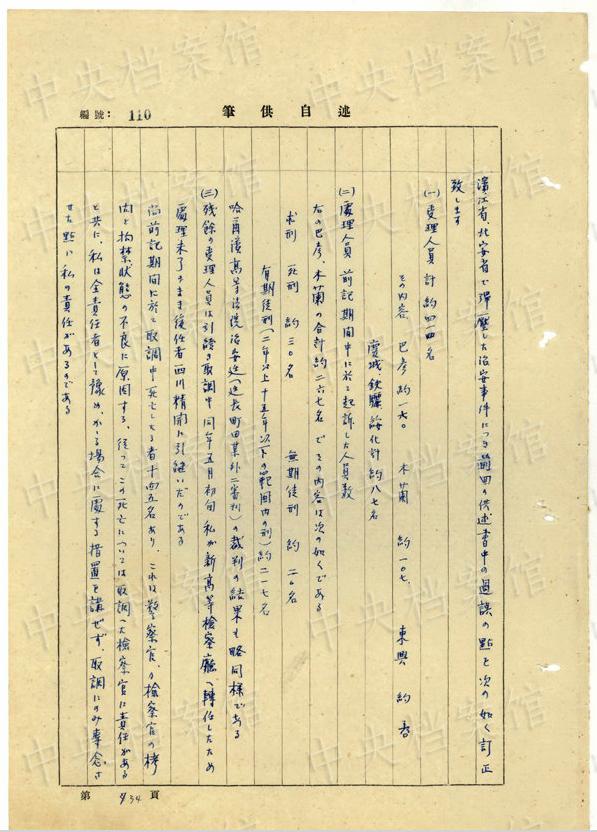 述自供筆
編號： 110
濱江省、北安省で彈壓した治安事件につき前回の供述書中の過誤の點を次の如く訂正
致します
(一) 受理人員 計 約四一四名
その内容 巴彦 約一六〇 木蘭 約一〇七、 東興 約
慶城 鉄驪 綏化計 約八七名
(二) 處理人員 前記期間中に於て起訴した人員数
右の巴彦、木蘭の合計約二六七名で その内容は次の如くである
求刑 死刑 約三〇名 無期徒刑 約二〇名
有期徒刑(二年以上十五年以下の範囲内の刑) 約二一七名
哈爾濱高等法院治安廷(廷長町田某外二審判)の裁判の結果も略同様である
(三) 残餘の受理人員は引続き取調中 同年五月初旬 私が新高等檢察廳へ轉任したため
處理未了のまま後任者西川精開に引継いだのである
尚前記期間に於て取調中死亡したる者十四五名あり、これは警察官、檢察官の拷
問と拘禁状態の不良に原因する、従ってこの死亡については取調べた檢察官に責任がある
と共に、私は全責任者として豫め、かゝる場合に處する措置を講ぜず、取調にのみ專念さ
せた點に私の責任があるのである
第 34 頁
中央档案馆